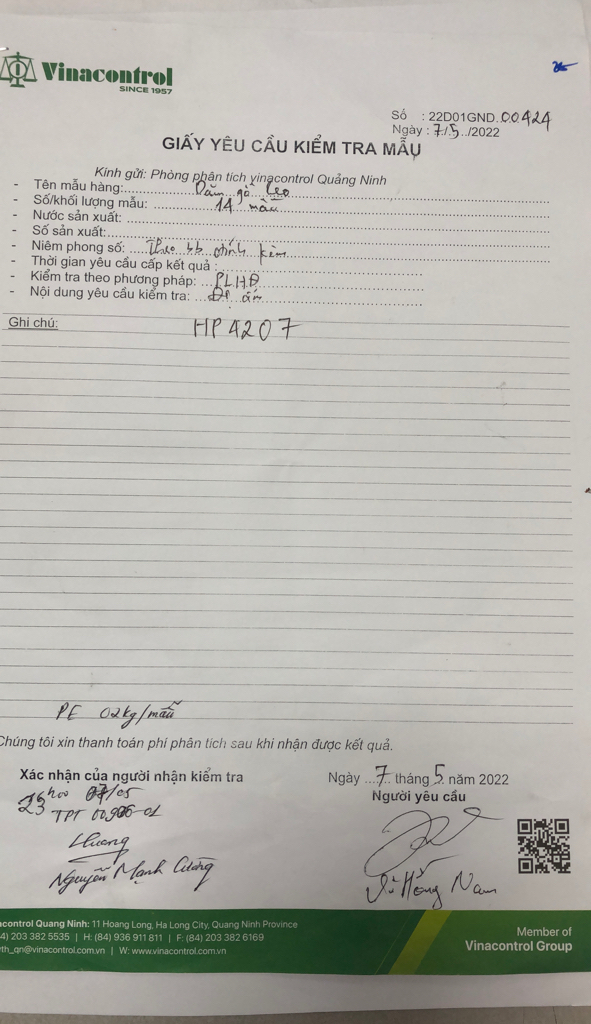 Vinacontrol
SINCE 1957
Số : 22D01GND.00424
Ngày : 7/5../2022
GIẤY YÊU CẦU KIỂM TRA MẪU
Kính gửi: Phòng phân tích vinacontrol Quảng Ninh
- Tên mẫu hàng: Dăm gỗ keo
- Số/khối lượng mẫu: 14 mẫu
- Nước sản xuất:
- Số sản xuất:
- Niêm phong số: Theo bb đính kèm
- Thời gian yêu cầu cấp kết quả :
- Kiểm tra theo phương pháp: PLHĐ
- Nội dung yêu cầu kiểm tra: Độ ẩm
Ghi chú: HP4207
PE 02kg/mẫu
Chúng tôi xin thanh toán phí phân tích sau khi nhận được kết quả.
Xác nhận của người nhận kiểm tra
Ngày ...7 tháng 5. năm 2022
Người yêu cầu
23h00 07/05
TPT 01
Nguyễn Mạnh Cường
Vũ Hồng Nam
acontrol Quang Ninh: 11 Hoang Long, Ha Long City, Quang Ninh Province
4) 203 382 5535 | H: (84) 936 911 811 | F: (84) 203 382 6169
th_qn@vinacontrol.com.vn | W: www.vinacontrol.com.vn
Member of
Vinacontrol Group